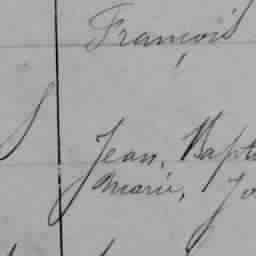 François
Jean, Bapt
Marie, Jo